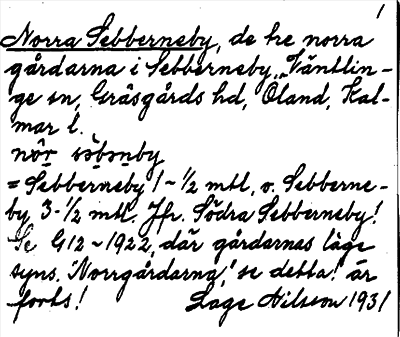 1
Norra Sebberneby, de tre norra
gårdarna i Sebberneby, Väntlin-
ge sn, Gräsgårds hd, Öland, Kal-
mar l.
= Sebberneby 1-1/2 mtl, o. Sebberne-
by 3-1/2 mtl. Jfr. Södra Sebberneby!
Se G12-1922, där gårdarnas läge
syns. "Norrgårdarna", se detta! är
forts! Lage Nilsson 1931